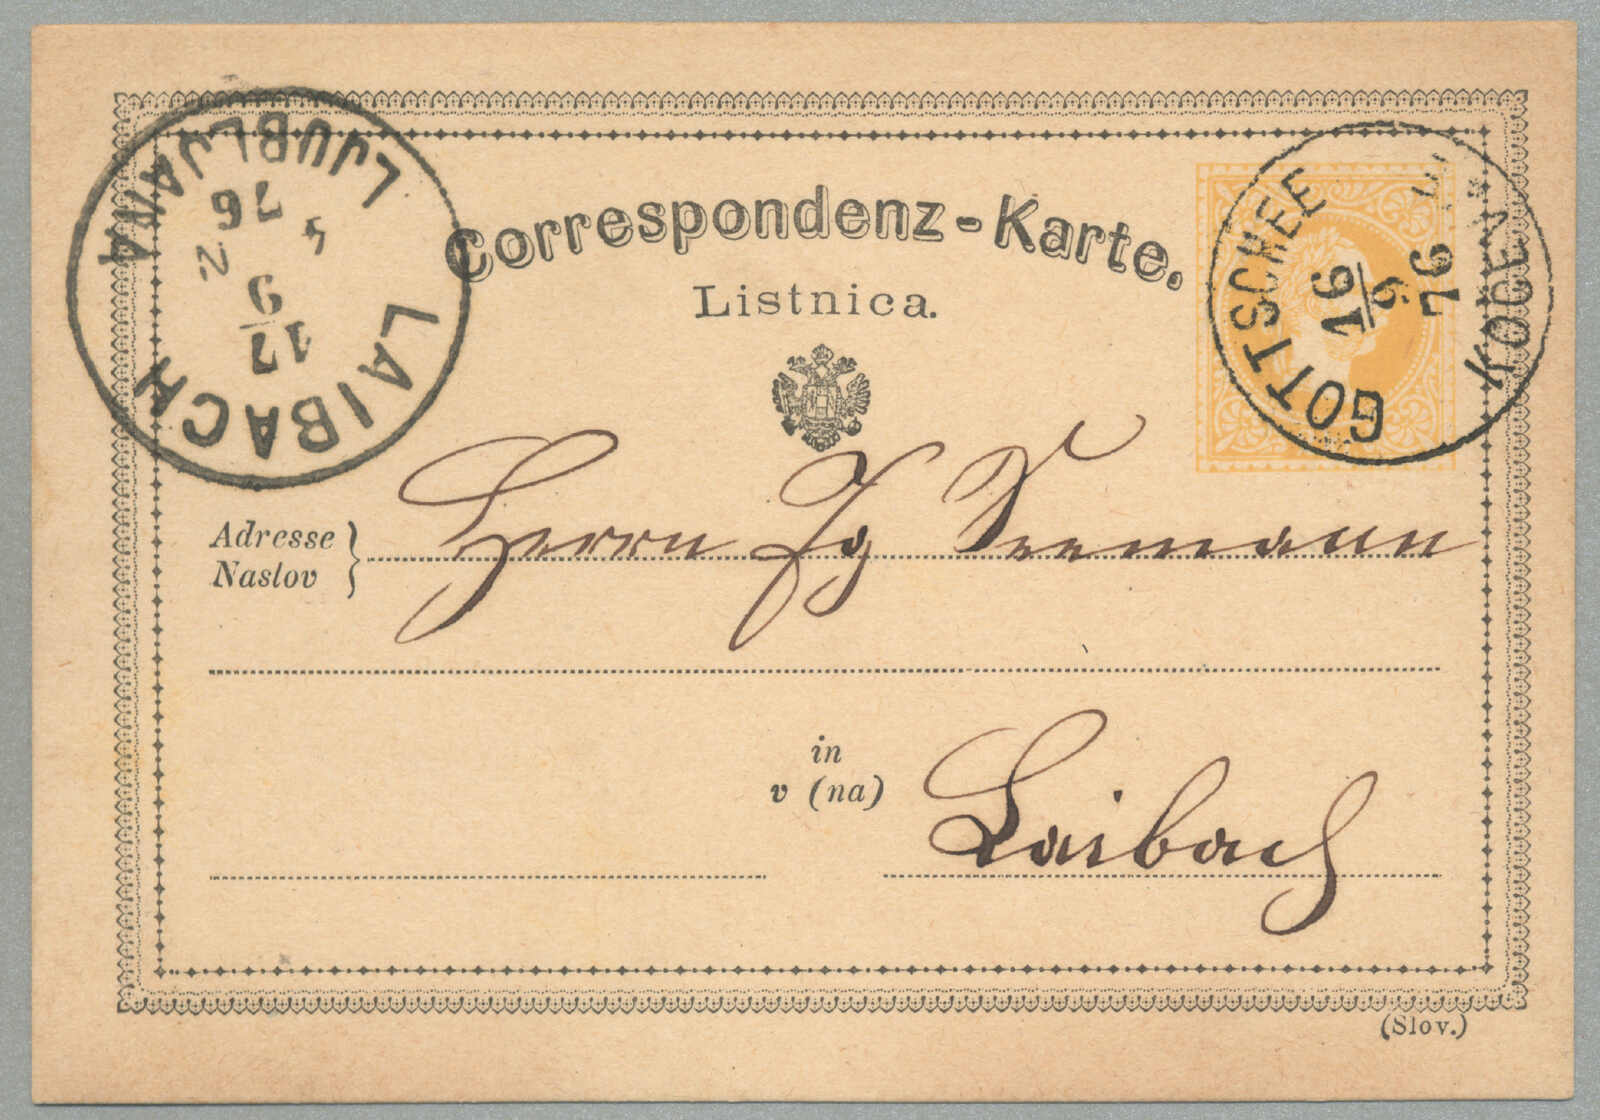 LAIBACH
LJUBLJANA
17
9
76
GOTTSCHEE
16
9
76
Correspondenz-Karte.
Listnica.
Adresse
Naslov
Herrn Jg Seemann
in
v (na)
Laibach
(Slov.)